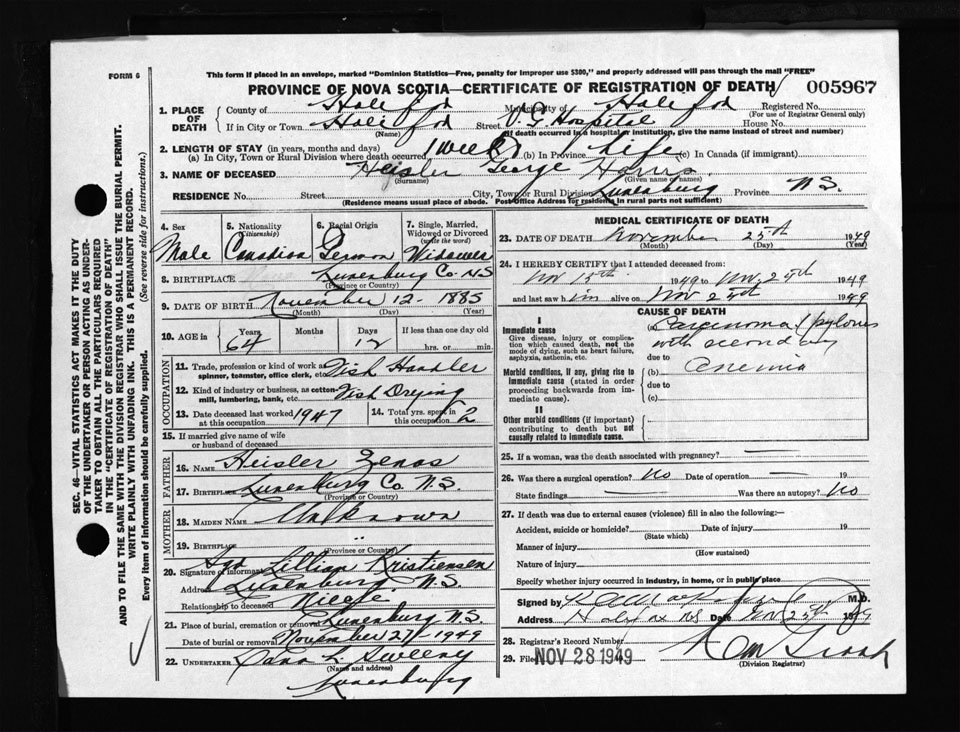 FORM 6
This form if placed in an envelope, marked "Dominion Statistics—Free, penalty for improper use $300," and properly addressed will pass through the mail "FREE"
PROVINCE OF NOVA SCOTIA—CERTIFICATE OF REGISTRATION OF DEATH 005967
1. PLACE OF DEATH County of Halifax Municipality of Halifax Registered No. (For use of Registrar General only)
If in City or Town Halifax (Name) Street V. G. Hospital House No.
(If death occurred in a hospital or institution, give the name instead of street and number)
2. LENGTH OF STAY (in years, months and days)
(a) In City, Town or Rural Division where death occurred 1 week (b) In Province Life (c) In Canada (if immigrant)
3. NAME OF DECEASED Heisler George Harris
(Surname) (Given name or names)
RESIDENCE No. Street City, Town or Rural Division Lunenburg Province N.S.
(Residence means usual place of abode. Post Office Address for residents in rural parts not sufficient)
SEC. 46—VITAL STATISTICS ACT MAKES IT THE DUTY OF THE UNDERTAKER OR PERSON ACTING AS UNDERTAKER TO OBTAIN ALL THE PARTICULARS REQUIRED IN THE "CERTIFICATE OF REGISTRATION OF DEATH" AND TO FILE THE SAME WITH THE DIVISION REGISTRAR WHO SHALL ISSUE THE BURIAL PERMIT.
WRITE PLAINLY WITH UNFADING INK. THIS IS A PERMANENT RECORD.
Every item of information should be carefully supplied. (See reverse side for instructions.)
4. Sex Male
5. Nationality (Citizenship) Canadian
6. Racial Origin German
7. Single, Married, Widowed or Divorced (write the word) Widower
8. BIRTHPLACE Lunenburg Co. N.S.
(Province or Country)
9. DATE OF BIRTH November 12 1885
(Month) (Day) (Year)
10. AGE in Years 64 Months Days 12 If less than one day hrs. or min.
OCCUPATION
11. Trade, profession or kind of work as spinner, teamster, office clerk, etc. Fish Handler
12. Kind of industry or business, as cotton-mill, lumbering, bank, etc. Fish Drying
13. Date deceased last worked at this occupation 1947 14. Total yrs. spent in this occupation 2
15. If married give name of wife or husband of deceased
FATHER
16. NAME Heisler Zenas
17. BIRTHPLACE Lunenburg Co. N.S.
(Province or Country)
MOTHER
18. MAIDEN NAME Unknown
19. BIRTHPLACE "
(Province or Country)
20. Signature of informant Sgd Lillian Kristiensen
Address Lunenburg N.S.
Relationship to deceased Niece
21. Place of burial, cremation or removal Lunenburg N.S.
Date of burial or removal November 27 1949
22. UNDERTAKER Sweeny
(Name and address)
Lunenburg
MEDICAL CERTIFICATE OF DEATH
23. DATE OF DEATH November 25th 1949
(Month) (Day) (Year)
24. I HEREBY CERTIFY that I attended deceased from:
Nov 15th 1949 to Nov. 25th 1949
and last saw him alive on Nov 25th 1949
CAUSE OF DEATH
I
Immediate cause
Give disease, injury or complication which caused death, not the mode of dying, such as heart failure, asphyxia, asthenia, etc.
(a) Carcinoma of pylorus with secondary
due to
Morbid conditions, if any, giving rise to immediate cause (stated in order proceeding backwards from immediate cause).
(b) Anemia
due to
(c)
II
Other morbid conditions (if important) contributing to death but not causally related to immediate cause.
25. If a woman, was the death associated with pregnancy?
26. Was there a surgical operation? No Date of operation 19
State findings Was there an autopsy? No
27. If death was due to external causes (violence) fill in also the following:—
Accident, suicide or homicide? Date of injury 19
(State which)
Manner of injury
(How sustained)
Nature of injury
Specify whether injury occurred in industry, in home, or in public place
Signed by M.D.
Address Halifax NS Date Nov 25th 1949
28. Registrar's Record Number
29. Filed NOV 28 1949
(Division Registrar)